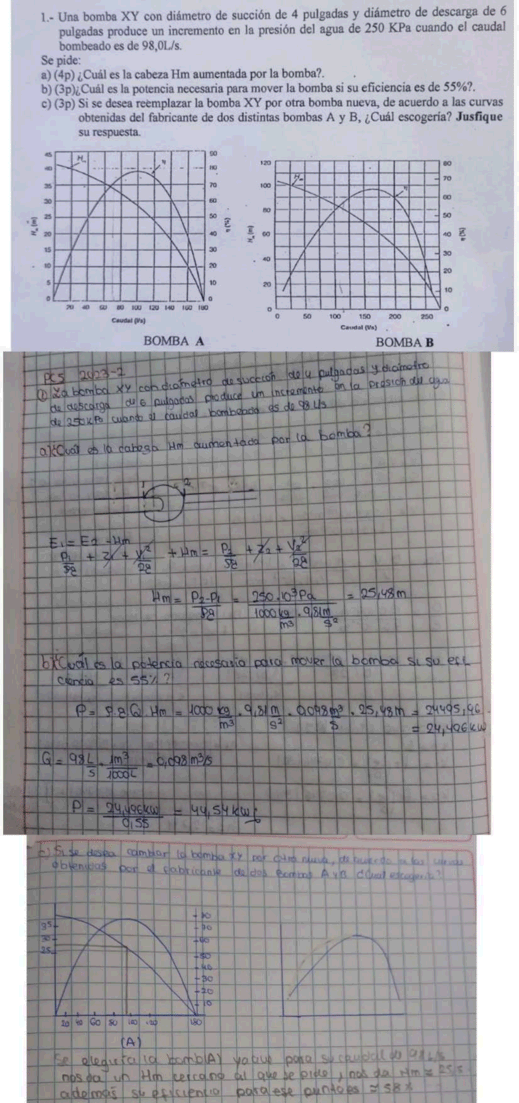 1.- Una bomba XY con diámetro de succión de 4 pulgadas y diámetro de descarga de 6
pulgadas produce un incremento en la presión del agua de 250 KPa cuando el caudal
bombeado es de 98,0L/s.
Se pide:
a) (4p) ¿Cuál es la cabeza Hm aumentada por la bomba?.
b) (3p)¿Cuál es la potencia necesaria para mover la bomba si su eficiencia es de 55%?.
c) (3p) Si se desea reemplazar la bomba XY por otra bomba nueva, de acuerdo a las curvas
obtenidas del fabricante de dos distintas bombas A y B, ¿Cuál escogería? Jusfique
su respuesta.
45 40 35 30 25 20 15 10 5 0
Hm (m)
Hm η
90 80 70 60 50 40 30 20 10 0
η (%)
20 40 60 80 100 120 140 160 180
Caudal (l/s)
BOMBA A
120 100 80 60 40 20 0
Hm (m)
Hm η
80 70 60 50 40 30 20 10 0
η (%)
0 50 100 150 200 250
Caudal (l/s)
BOMBA B
PCS 2023-2
① La bomba XY con diametro de succión de 4 pulgadas y diametro
de descarga de 6 pulgadas produce un incremento en la presión del agua
de 250 KPa cuando el caudal bombeado es de 98 L/s
a) ¿Cual es la cabeza Hm aumentada por la bomba?
1 2
E1 = E2 - Hm
P1/ρg + Z1 + V1²/2g + Hm = P2/ρg + Z2 + V2²/2g
Hm = P2-P1/ρg = 250.10³Pa/1000 kg/m³ . 9,81 m/s² = 25,48 m
b) ¿Cual es la potencia necesaria para mover la bomba si su efi
ciencia es 55%?
P = ρ.g.Q.Hm = 1000 kg/m³ . 9,81 m/s² . 0,098 m³/s . 25,48 m = 24495,96
= 24,496 kW
Q = 98 L/s . 1m³/1000L = 0,098 m³/s
P = 24,496 kW/0,55 = 44,54 kW
c) Si se desea cambiar la bomba XY por otra nueva, de acuerdo a las
obtenidas por el fabricante de dos bombas A y B ¿Cual escogeria?
35 30 25
80 70 60 50 40 30 20 10
20 40 60 80 180
(A)
Se eleguiria la bomb(A) ya que para su caudal de 98 L/s
nos da un Hm cercano al que se pide, nos da Hm = 25,5
ademas su eficiencia para ese punto es ≈ 58%